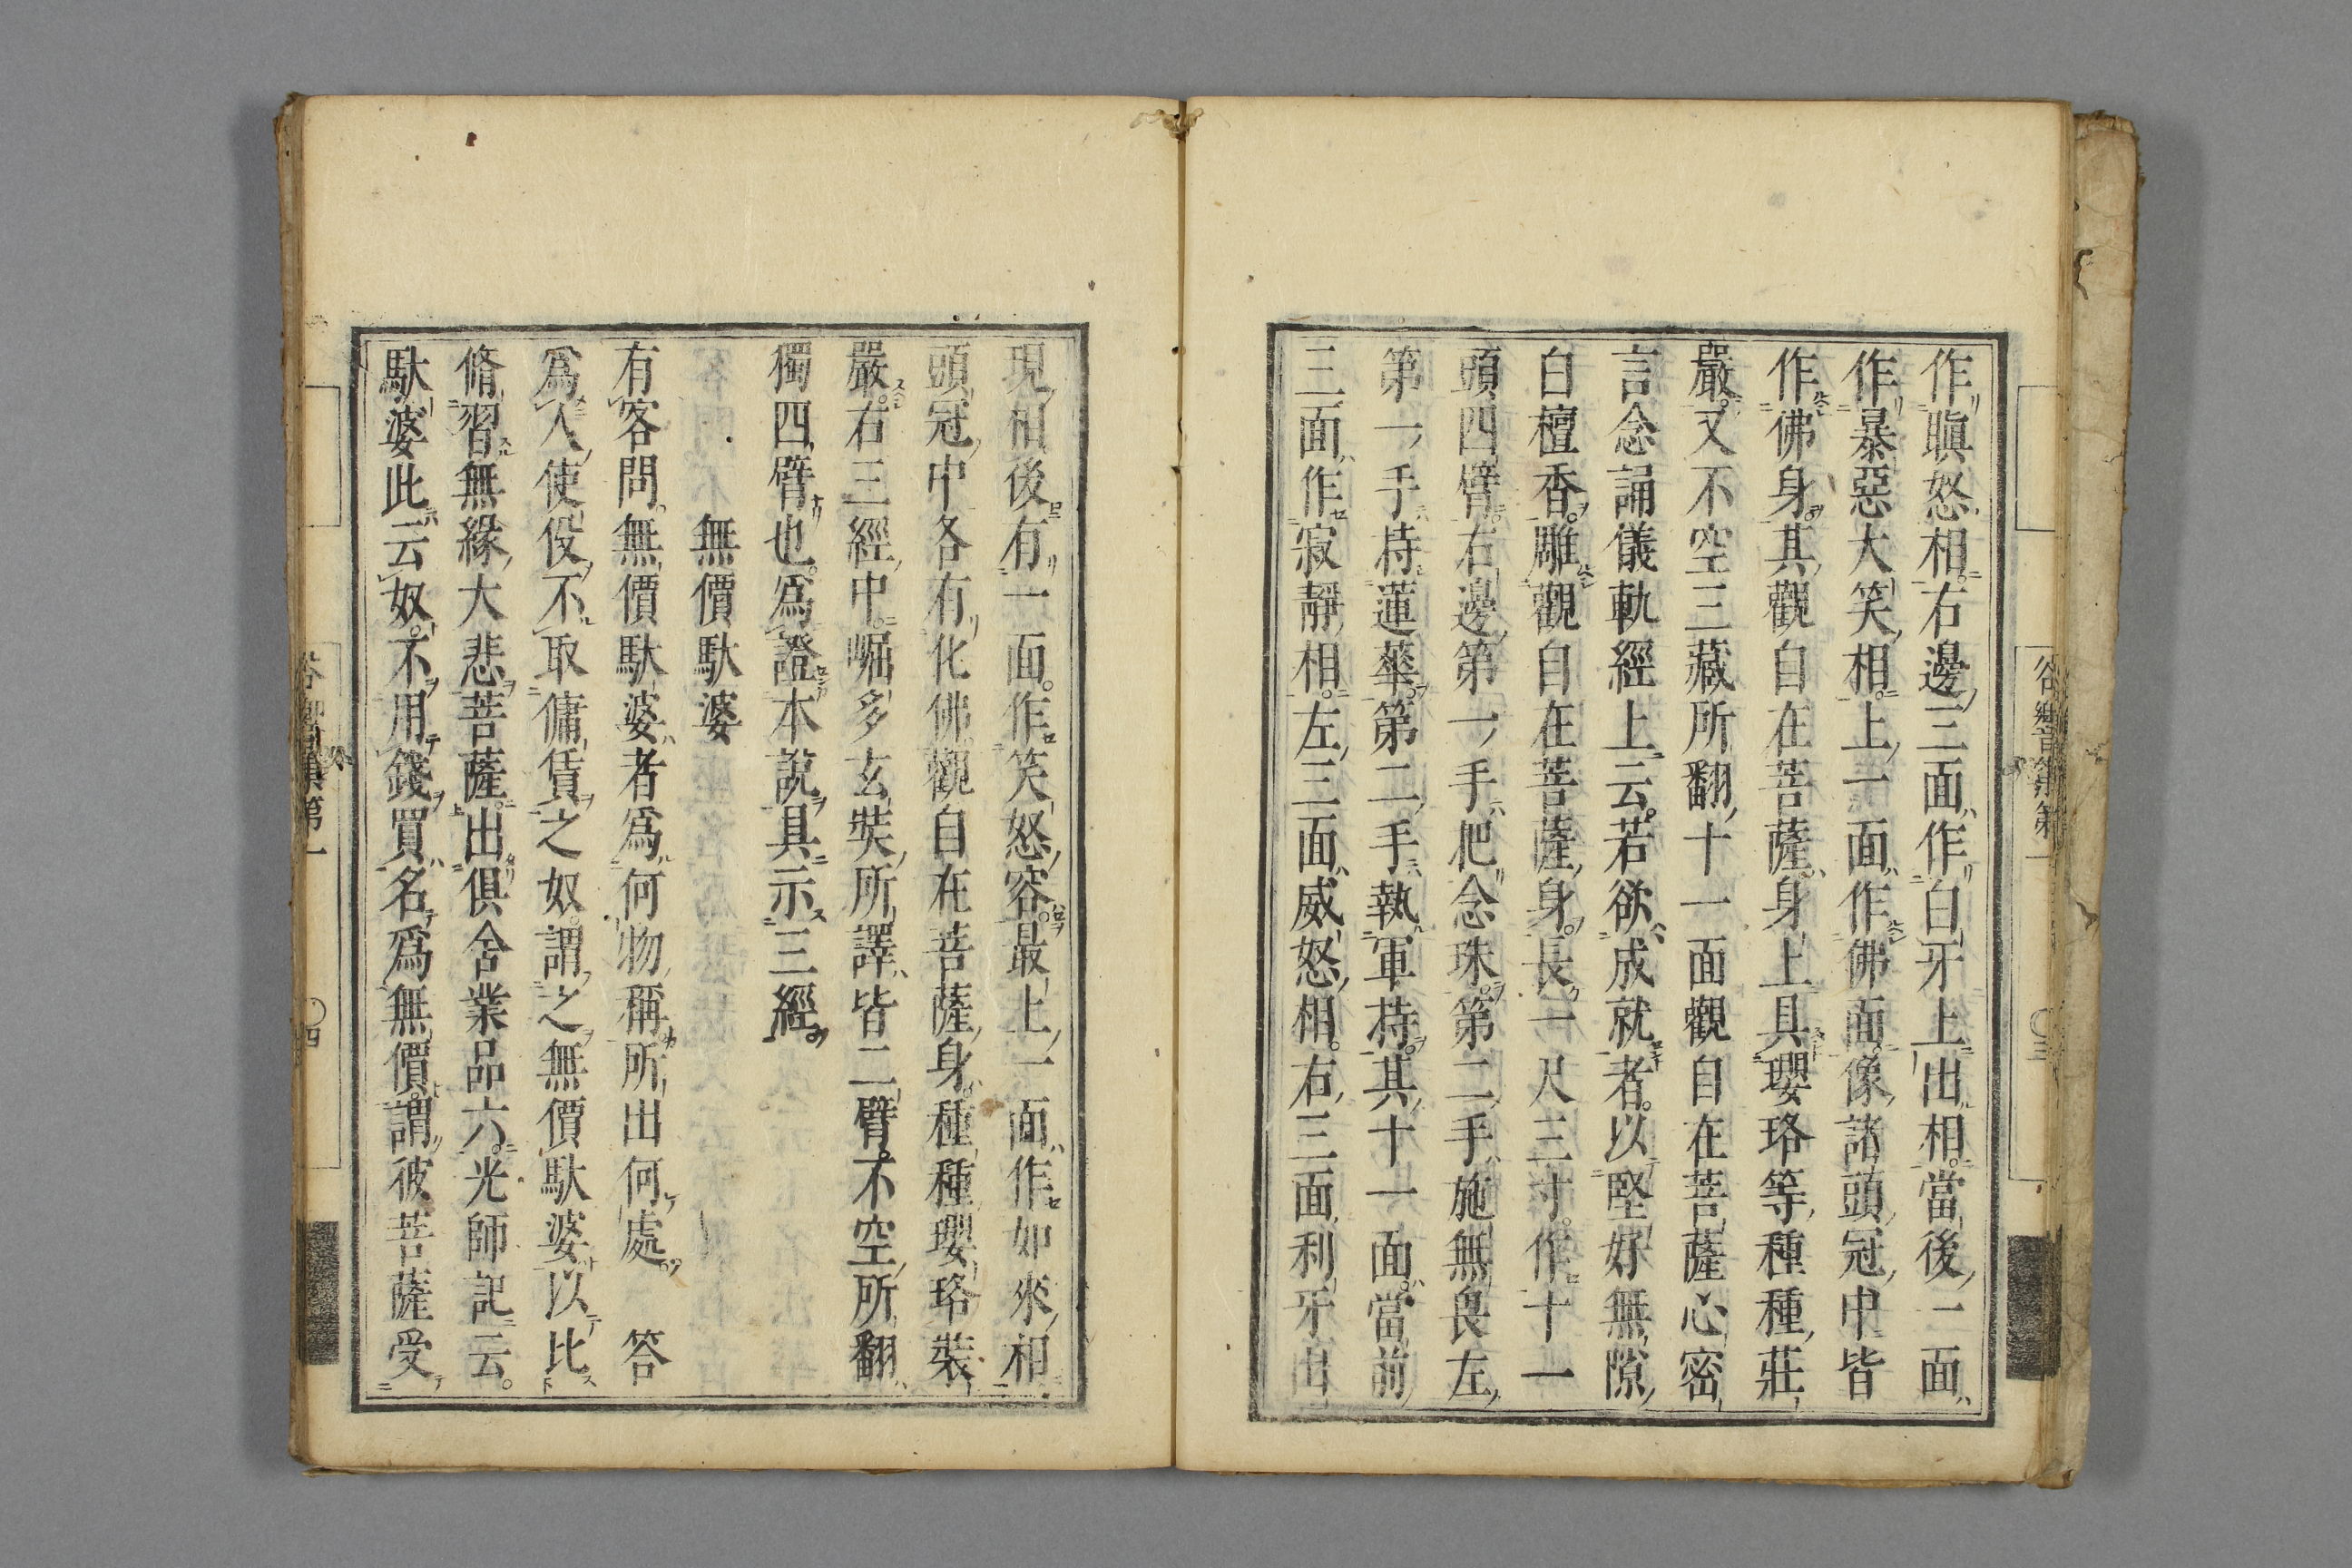 作瞋怒相右邊三面作白牙上出相當後一面
作暴惡大笑相上一面作佛面像諸頭冠中皆
作佛身其觀自在菩薩身上具瓔珞等種種莊
嚴又不空三藏所翻十一面觀自在菩薩心密
言念誦儀軌經上云若欲成就者以堅好無隙
白檀香雕觀自在菩薩身長一尺三寸作十一
頭四臂右邊第一手把念珠第二手施無畏左
第一手持蓮華第二手執軍持其十一面當前
三面作寂靜相左三面威怒相右三面利牙出
現相後有一面作笑怒容最上一面作如來相
頭冠中各有化佛觀自在菩薩身種種瓔珞裝
嚴右三經中崛多玄奘所譯皆二臂不空所翻
獨四臂也爲證本說具示三經
無價馱婆
有客問無價馱婆者爲何物稱所出何處　答
爲人使役不取傭賃之奴謂之無價馱婆以比
脩習無緣大悲菩薩出俱舍業品六光師記云
馱婆此云奴不用錢買名爲無價謂彼菩薩受
谷響集第一
〇三
〇四